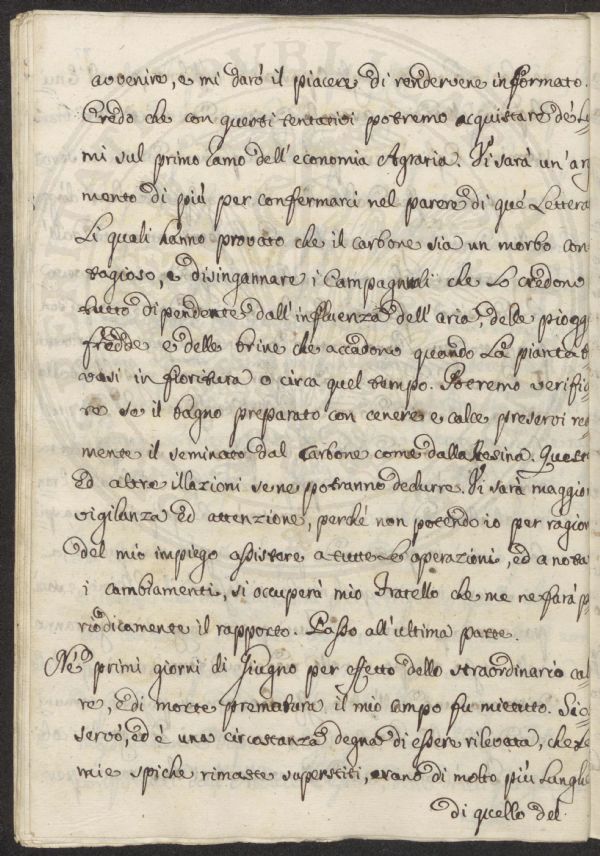 avvenire, e mi darò il piacere di rendervene informato.
Credo che con questi tentativi potremo acquistare de' Lu
mi sul primo ramo dell'economia Agraria. Vi sarà un'ar
mento di più per confermarci nel parere di que' Lettera
Li quali hanno provato che il carbone sia un morbo con
tagioso, e disingannare i Campagnuoli che Lo credono
tutto dipendente dall'influenza dell'aria, delle piogg
fredde e delle brine che accadono quando La pianta t
vasi in fioritura o circa quel tempo. Potremo verifi
re se il bagno preparato con cenere e calce preservi
mente il seminato dal Carbone come dalla Resina. Quest
Ed altre illazioni se ne potranno dedurre. Vi sarà maggior
vigilanza Ed attenzione, perché non potendo io per ragion
del mio impiego assistere a tutte Le operazioni, ed a nota
i cambiamenti, si occuperà mio Fratello che me ne farà p
riodicamente il rapporto. Passo all'ultima parte.
Né primi giorni di Giugno per effetto dello straordinario ca
re, E di morte prematura il mio campo fu mietuto. Si o
servò, ed è una circostanza degna di essere rilevata, che
mie spiche rimaste superstiti, erano di molto più Lunghe
di quello del